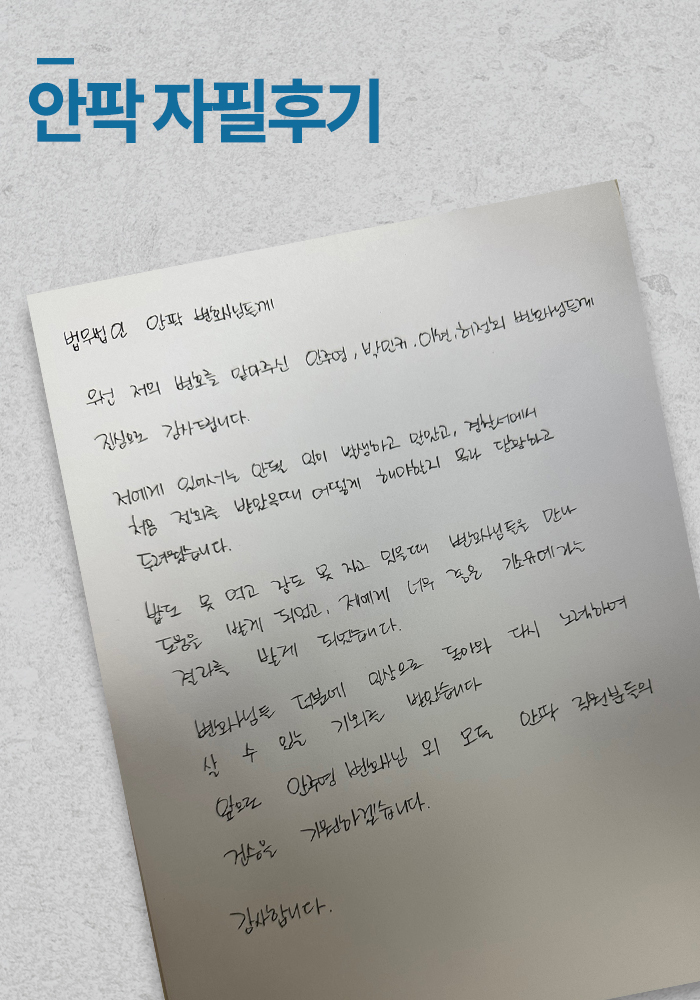 안팍 자필후기
법무법인 안팍 변호사님들께
우선 저의 변호를 맡아주신 안주영, 박민규, 이연, 허정회 변호사님들께
진심으로 감사드립니다.
저에게 있어서는 안될 일이 발생하고 말았고, 경찰서에서
처음 전화를 받았을때 어떻게 해야할지 몰라 당황하고
두려웠습니다.
밥도 못 먹고 잠도 못 자고 있을때 변호사님들을 만나
도움을 받게 되었고, 저에게 너무 좋은 기소유예라는
결과를 받게 되었습니다.
변호사님들 덕분에 일상으로 돌아와 다시 노력하며
살 수 있는 기회를 받았습니다
앞으로 안주영 변호사님 외 모든 안팍 직원분들의
건승을 기원하겠습니다.
감사합니다.